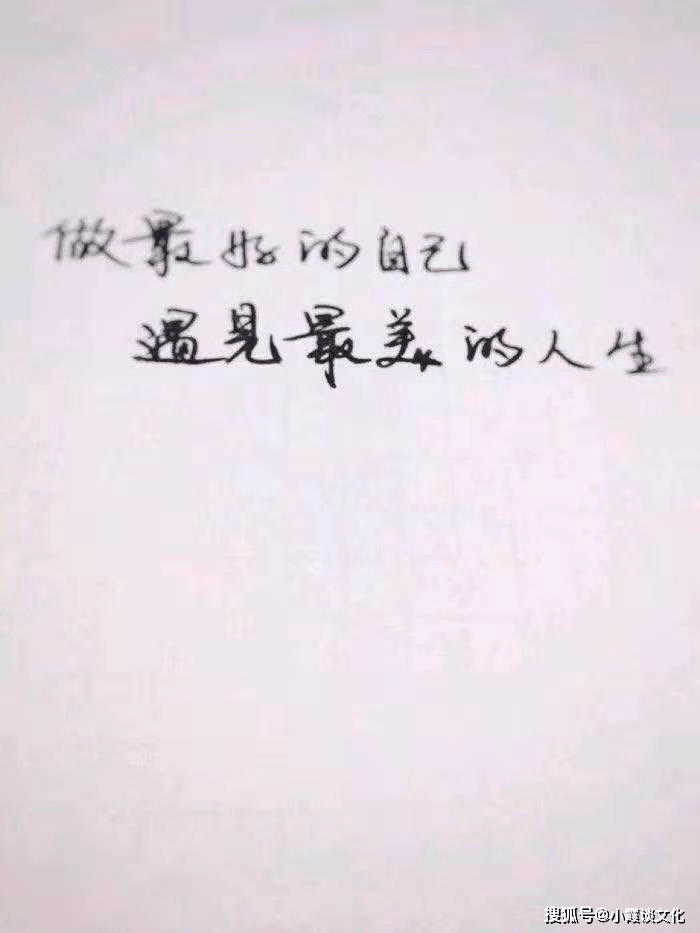 做最好的自己
遇见最美的人生
搜狐号@小霞谈文化